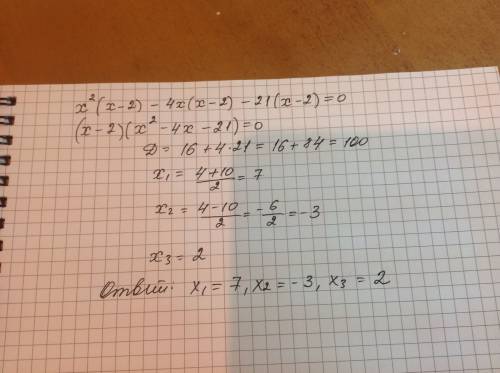 x²(x-2) - 4x(x-2) - 21(x-2) = 0
(x-2)(x² - 4x - 21) = 0
D = 16 + 4·21 = 16 + 84 = 100
x₁ = (4+10)/2 = 7
x₂ = (4-10)/2 = -6/2 = -3
x₃ = 2
Ответ: x₁ = 7, x₂ = -3, x₃ = 2